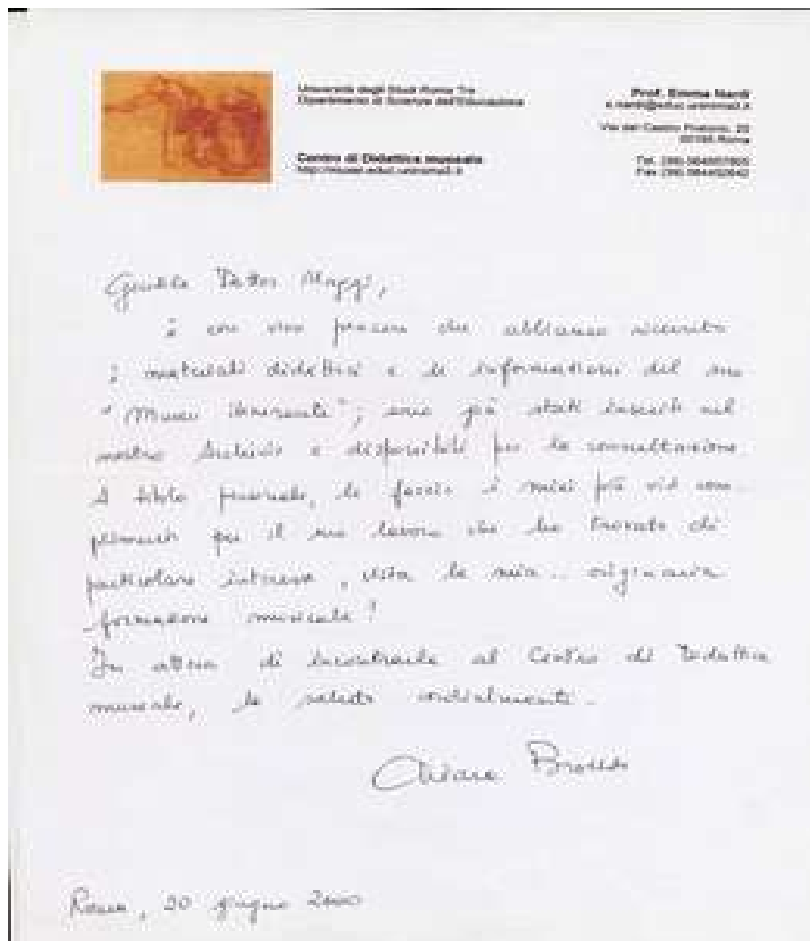 Università degli Studi Roma Tre
Dipartimento di Scienze dell'Educazione
Centro di Didattica museale
Prof. Emma Nardi
Via del Castro Pretorio, 20
Roma
Gentile Dottor Maggi,
è con vivo piacere che abbiamo ricevuto
i materiali didattici e le informazioni del suo
"Museo itinerante"; sono già stati inseriti nel
nostro Archivio e disponibili per la consultazione.
A titolo personale, le faccio i miei più vivi com-
plimenti per il suo lavoro che ho trovato di
particolare interesse, vista la mia .. originaria
formazione musicale!
In attesa di incontrarla al Centro di Didattica
museale, la saluto cordialmente.
Roma, 20 giugno 2000